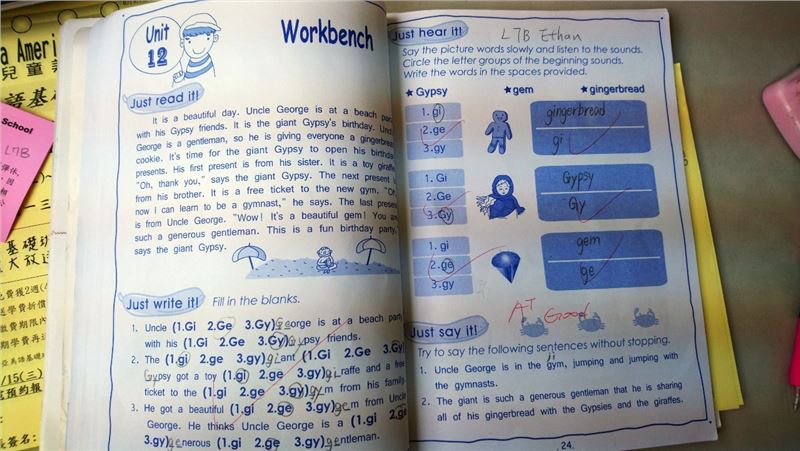 Unit
12
Workbench
Just read it!
It is a beautiful day. Uncle George is at a beach party
with his Gypsy friends. It is the giant Gypsy's birthday. Uncle
George is a gentleman, so he is giving everyone a gingerbread
cookie. It's time for the giant Gypsy to open his birthday
presents. His first present is from his sister. It is a toy giraffe.
"Oh, thank you," says the giant Gypsy. The next present
from his brother. It is a free ticket to the new gym. "Oh,
now I can learn to be a gymnast," he says. The last present
is from Uncle George. "Wow! It's a beautiful gem! You are
such a generous gentleman. This is a fun birthday party,"
says the giant Gypsy.
Just write it!
Fill in the blanks.
1. Uncle (1.Gi 2.Ge 3.Gy)George is at a beach party
with his (1.Gi 2.Ge 3.Gy)Gypsy friends.
2. The (1.gi 2.ge 3.gy)giant (1.Gi 2.Ge 3.Gy)
Gypsy got a toy (1.gi 2.ge 3.gy)giraffe and a free
ticket to the (1.gi 2.ge 3.gy)gym from his family.
3. He got a beautiful (1.gi 2.ge 3.gy)gem from Uncle
George. He thinks Uncle George is a (1.gi 2.ge
3.gy)generous (1.gi 2.ge 3.gy)gentleman.
Just hear it!
L7B Ethan
Say the picture words slowly and listen to the sounds.
Circle the letter groups of the beginning sounds.
Write the words in the spaces provided.
★ Gypsy ★gem ★gingerbread
1. gi
2. ge
3. gy
gingerbread
gi
1. Gi
2. Ge
3. Gy
Gypsy
Gy
1. gi
2. ge
3. gy
gem
ge
AT Good
Just say it!
Try to say the following sentences without stopping.
ji
1. Uncle George is in the gym, jumping and jumping with
the gymnasts.
2. The giant is such a generous gentleman that he is sharing
all of his gingerbread with the Gypsies and the giraffes.
24
a Ameri
兒童美
語基礎
School
L7B